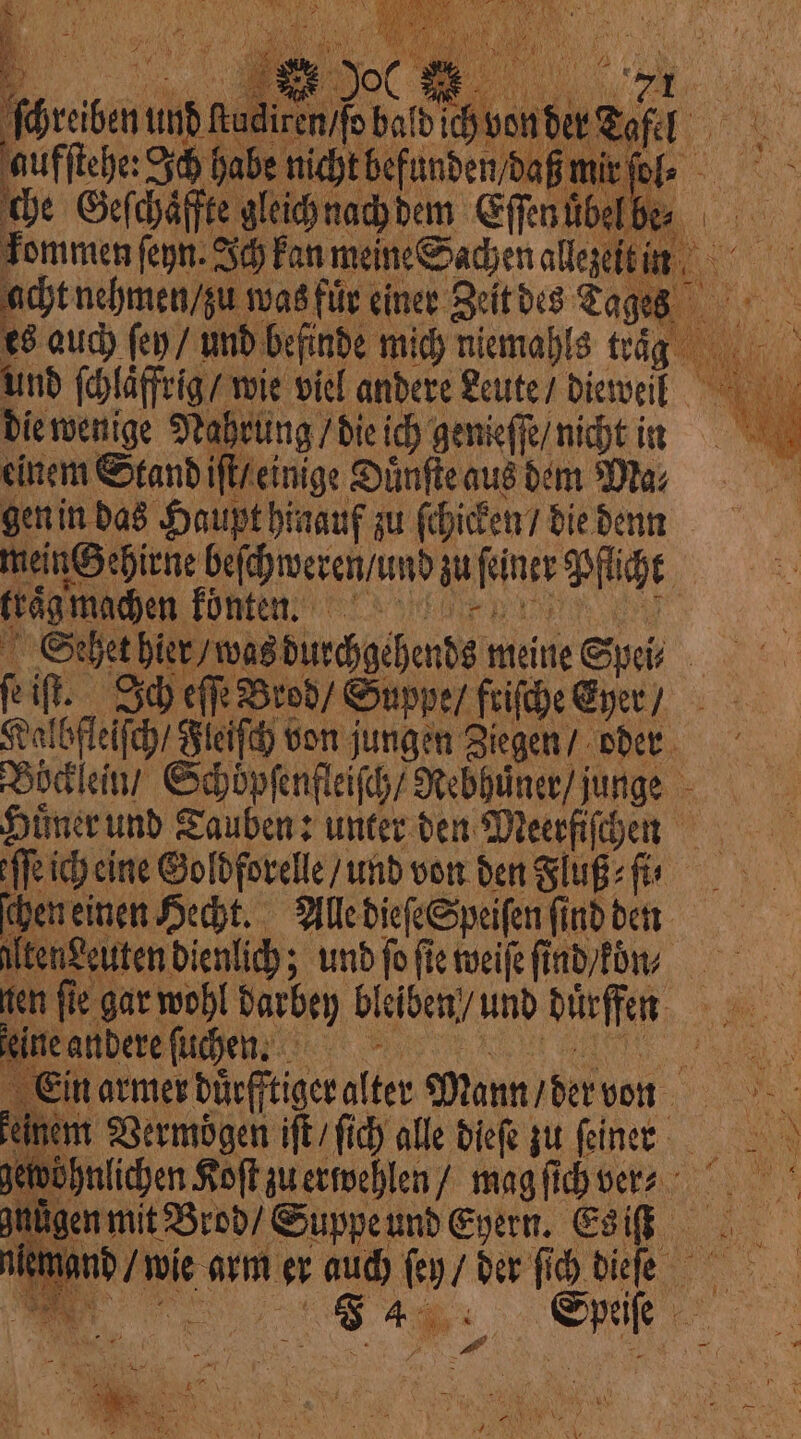 )o( 71
ſchreiben und ſtudiren/ſo bald ich von der Tafel
aufſtehe: Ich habe nicht befunden/daß mir ſol⸗
che Geſchaͤffte gleich nach dem Eſſen uͤbel be⸗
kommen ſeyn. Ich kan meine Sachen allezeit in
acht nehmen/zu was fuͤr einer Zeit des Tages
es auch ſey / und befinde mich niemahls traͤg
und ſchlaͤffrig / wie viel andere Leute / dieweil
die wenige Nahrung / die ich genieſſe/nicht in
einem Stand iſt/ einige Duͤnſte aus dem Ma⸗
gen in das Haupt hinauf zu ſchicken / die denn
mein Gehirne beſchweren/und zu ſeiner Pflicht
traͤg machen koͤnten.
Sehet hier / was durchgehends meine Spei⸗
ſe iſt. Ich eſſe Brod/ Suppe/ friſche Eyer /
Kalbfleiſch/ Fleiſch von jungen Ziegen / oder
Boͤcklein/ Schoͤpſenfleiſch/ Rebhuͤner/ junge
Huͤner und Tauben: unter den Meerfiſchen
eſſe ich eine Goldforelle / und von den Fluß⸗fi⸗
ſchen einen Hecht. Alle dieſe Speiſen ſind den
alten Leuten dienlich; und ſo ſie weiſe ſind/koͤn⸗
nen ſie gar wohl darbey bleiben/ und duͤrffen
keine andere ſuchen.
Ein armer duͤrfftiger alter Mann / der von
keinem Vermoͤgen iſt / ſich alle dieſe zu ſeiner
gewoͤhnlichen Koſt zu erwehlen / mag ſich ver⸗
gnuͤgen mit Brod/ Suppe und Eyern. Es iſt
niemand / wie arm er auch ſey / der ſich dieſe
F 4 Speiſe